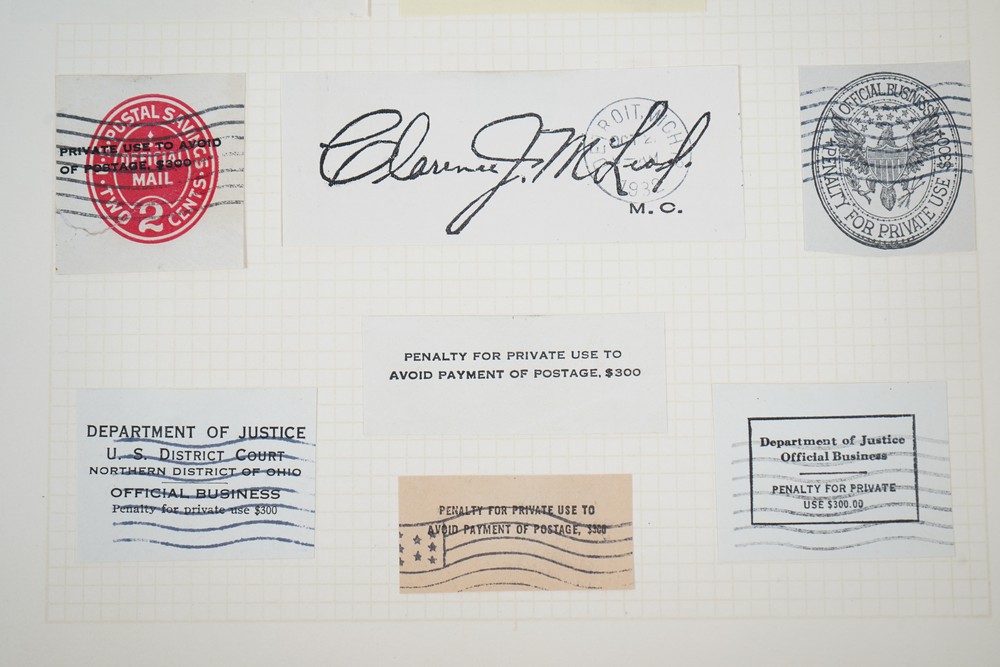 POSTAL SAVINGS
OFFICIAL
MAIL
U.S.
TWO 2 CENTS
PRIVATE USE TO AVOID
OF POSTAGE, $300
Clarence J. McLeod.
DETROIT, MICH
1932
M. C.
OFFICIAL BUSINESS
PENALTY FOR PRIVATE USE $300
PENALTY FOR PRIVATE USE TO
AVOID PAYMENT OF POSTAGE, $300
DEPARTMENT OF JUSTICE
U. S. DISTRICT COURT
NORTHERN DISTRICT OF OHIO
OFFICIAL BUSINESS
Penalty for private use $300
PENALTY FOR PRIVATE USE TO
AVOID PAYMENT OF POSTAGE, $300
Department of Justice
Official Business
PENALTY FOR PRIVATE
USE $300.00